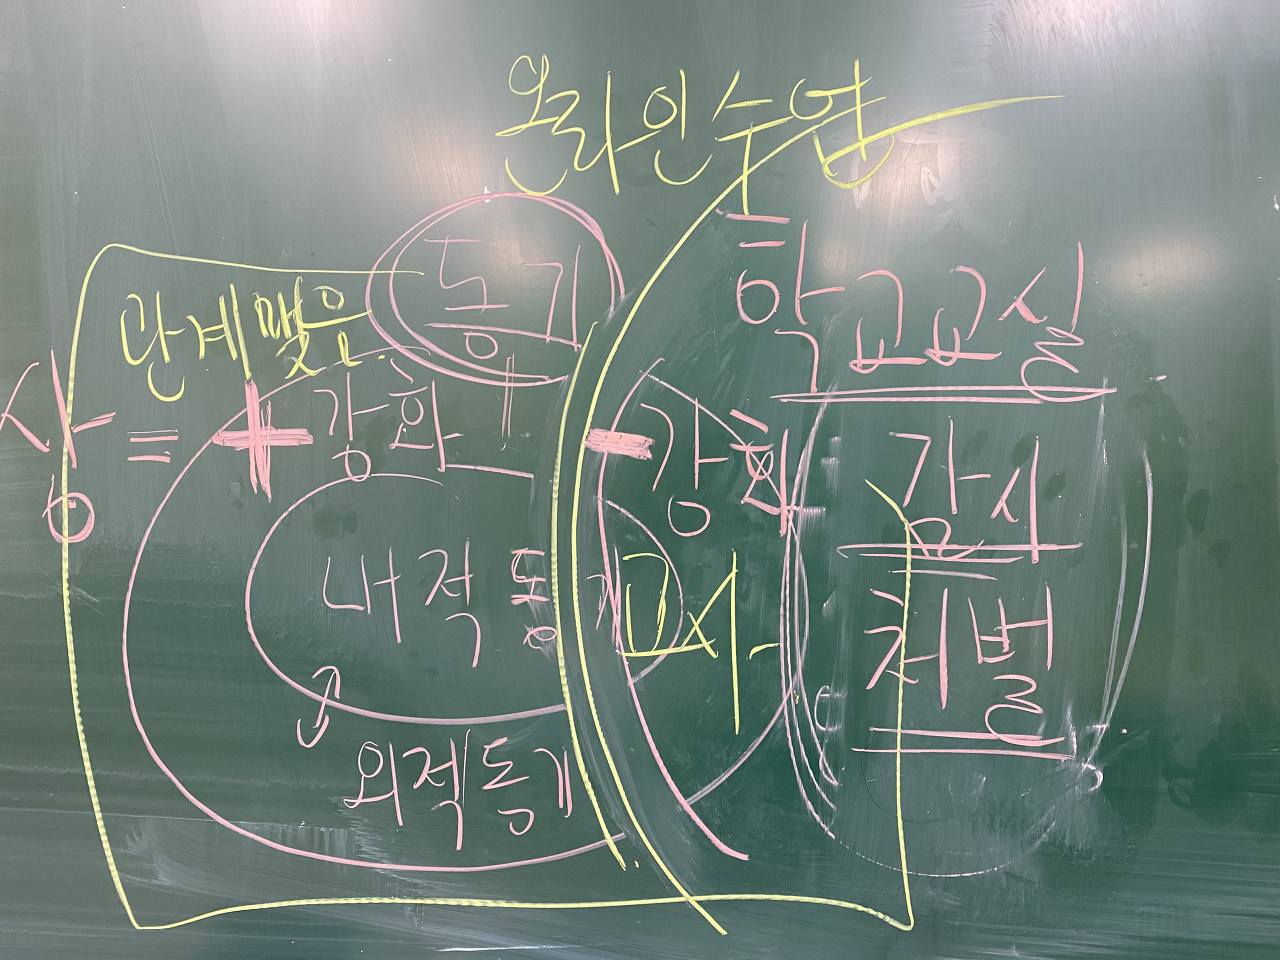 온라인수업
동기
학교교실
단계맞은
상 = + 강화
- 강화
감시
내적 동기
교사
처벌
외적동기